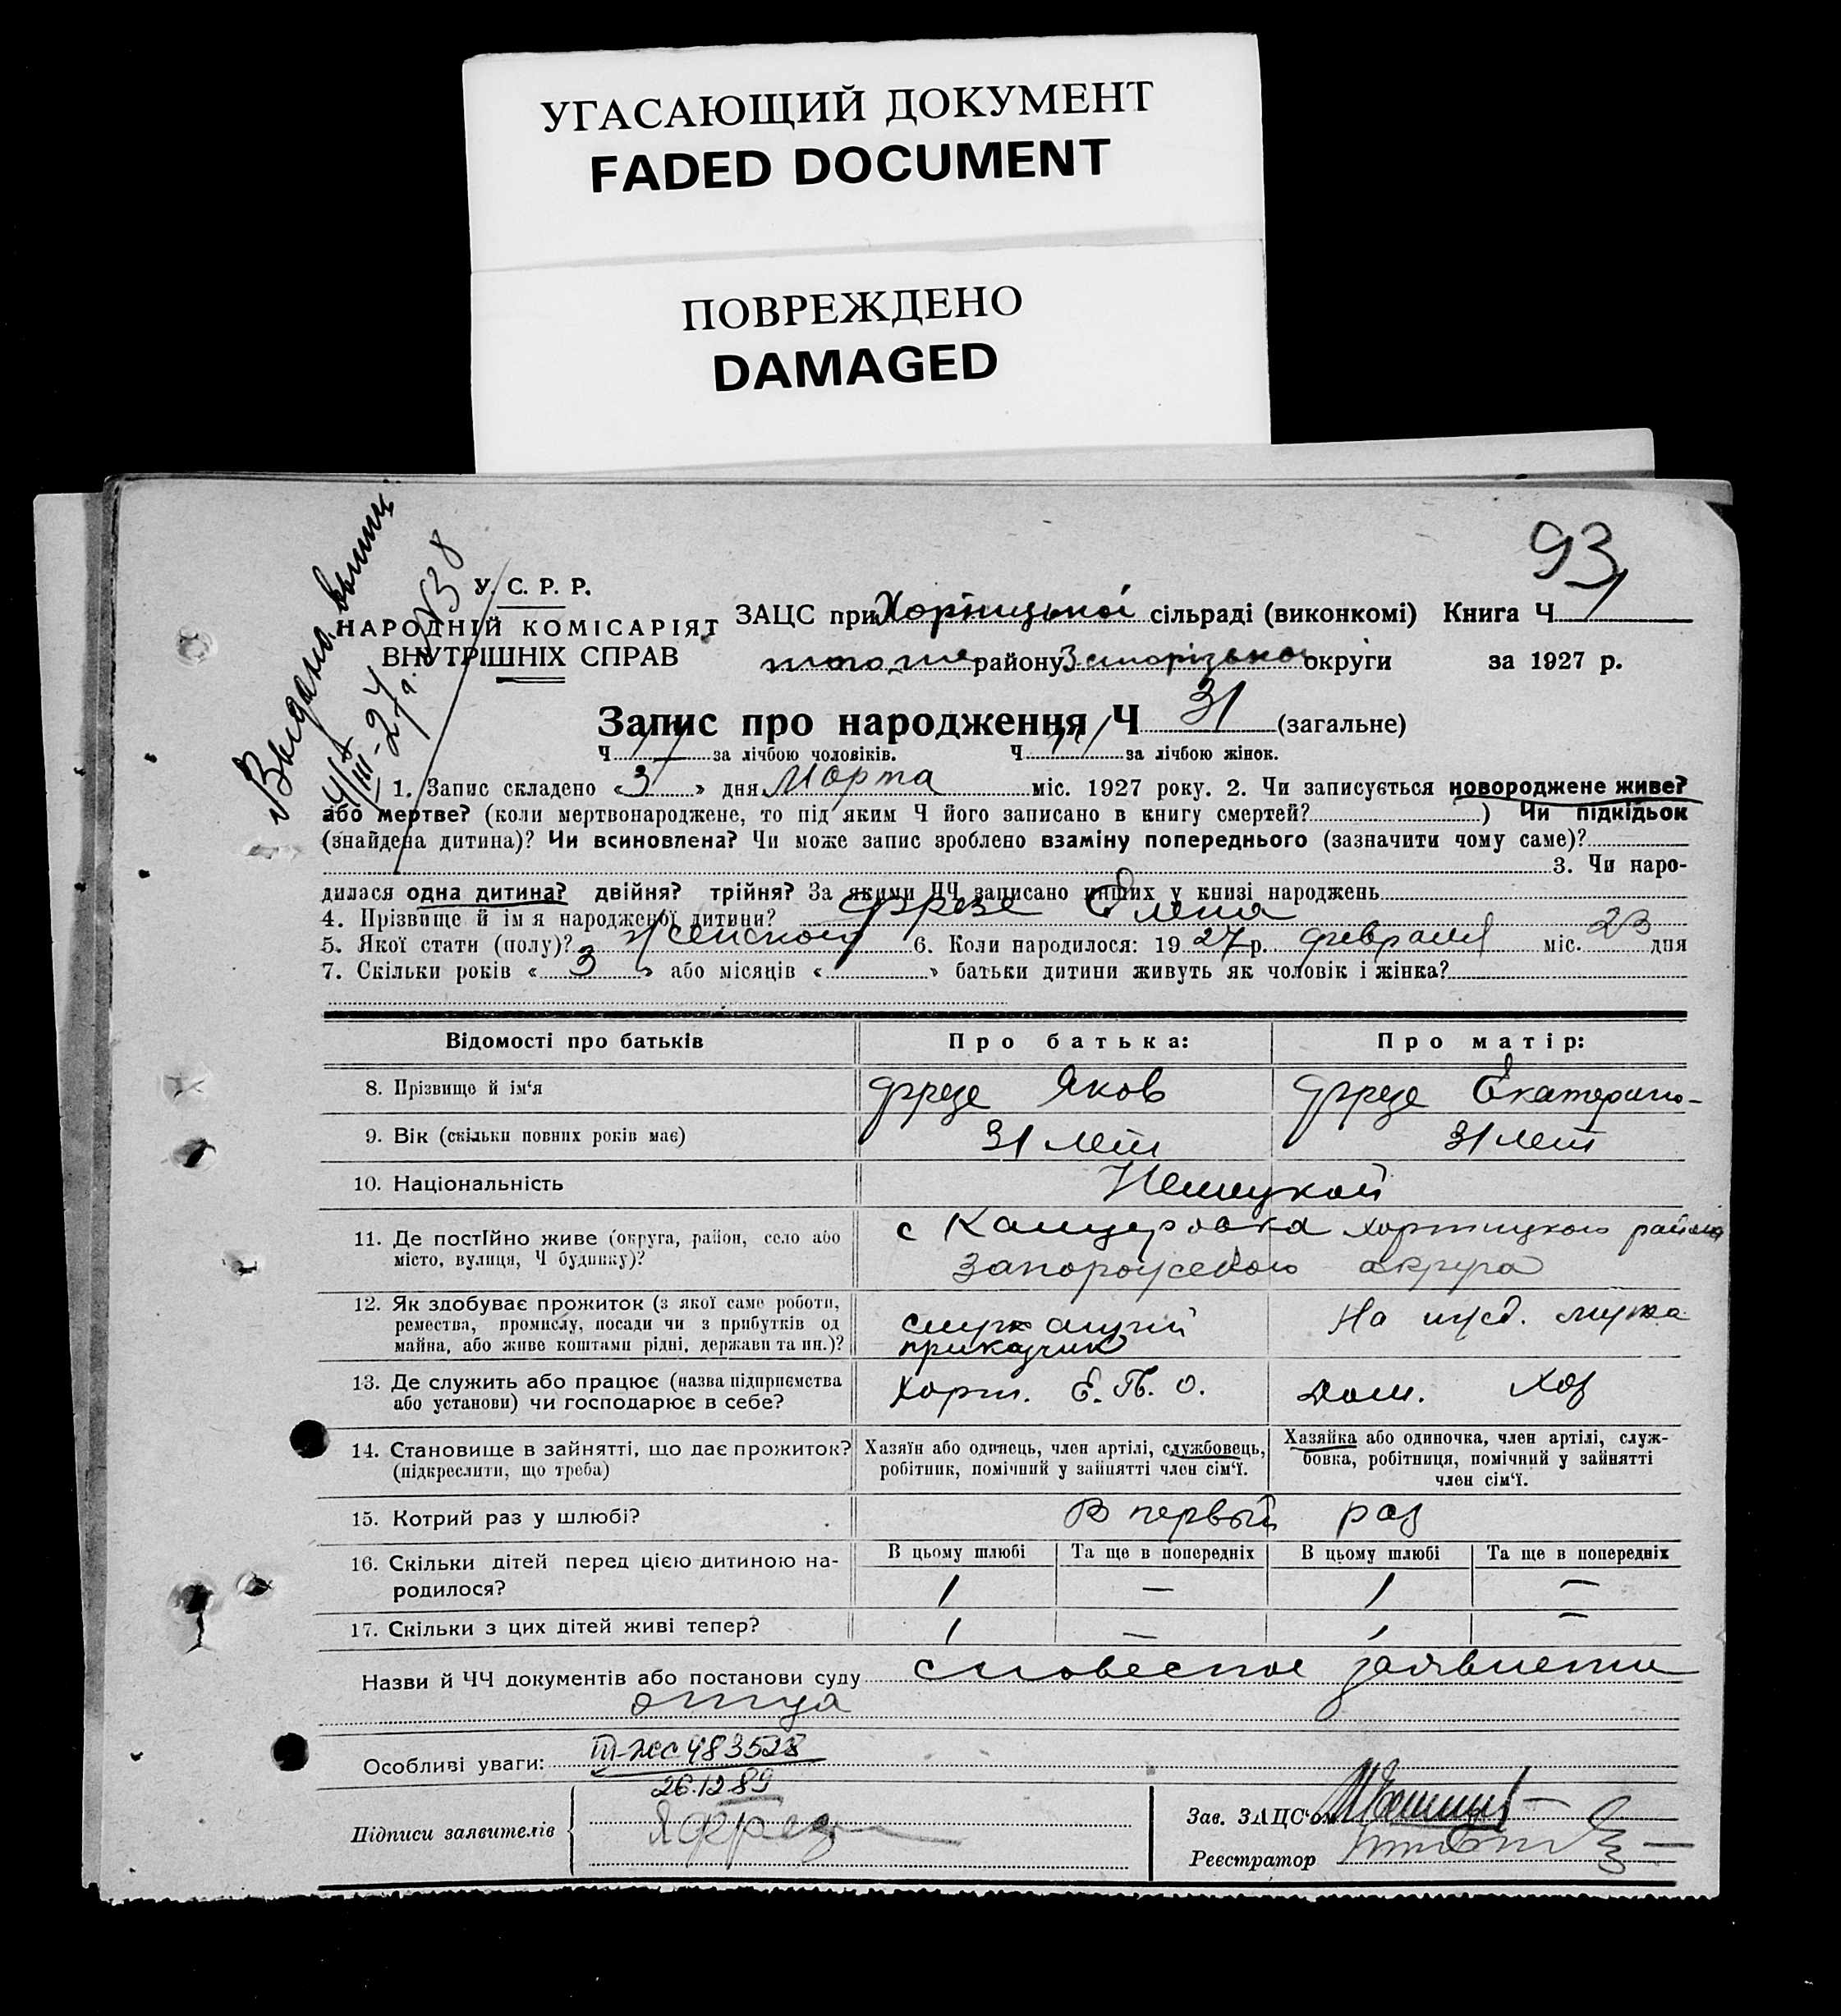 УГАСАЮЩИЙ ДОКУМЕНТ
FADED DOCUMENT
ПОВРЕЖДЕНО
DAMAGED
93
Выдана выпись
4/III-27 г. №38
У. С. Р. Р.
НАРОДНІЙ КОМІСАРІЯТ
ВНУТРІШНІХ СПРАВ
ЗАЦС при Хортицької сільраді (виконкомі) Книга Ч 1
того же району Запорізької округи за 1927 р.
Запис про народження Ч 31 (загальне)
Ч за лічбою чоловіків. Ч за лічбою жінок.
1. Запис складено «3» дня Марта міс. 1927 року. 2. Чи записується новороджене живе?
або мертве? (коли мертвонароджене, то під яким Ч його записано в книгу смертей? ) Чи підкідьок
(знайдена дитина)? Чи всиновлена? Чи може запис зроблено взаміну попереднього (зазначити чому саме)?
3. Чи наро-
дилася одна дитина? двійня? трійня? За якими ЧЧ записано инших у книзі народжень
4. Прізвище й ім'я народженої дитини? Фрезе Елена
5. Якої стати (полу)? женского 6. Коли народилося: 1927 р. февраля міс. 23 дня
7. Скільки років «3» або місяців « » батьки дитини живуть як чоловік і жінка?
Відомості про батьків Про батька: Про матір:
8. Прізвище й ім'я Фрезе Яков Фрезе Екатерина
9. Вік (скільки повних років має) 31 лет 31 лет
10. Національність Немецкой
11. Де постійно живе (округа, район, село або
місто, вулиця, Ч будинку)?
с Канцеровка Хортицкого района
Запорожского округа
12. Як здобуває прожиток (з якої саме роботи,
ремества, промислу, посади чи з прибутків од
майна, або живе коштами рідні, держави та ин.)?
служащий
приказчик
На ижд. мужа
13. Де служить або працює (назва підприємства
або установи) чи господарює в себе?
Хорт. Е. П. О. Дом. Хоз
14. Становище в зайнятті, що дає прожиток?
(підкреслити, що треба)
Хазяїн або одинець, член артілі, службовець,
робітник, помічний у зайнятті член сім'ї.
Хазяйка або одиночка, член артілі, служ-
бовка, робітниця, помічний у зайнятті
член сім'ї.
15. Котрий раз у шлюбі? В первый раз
16. Скільки дітей перед цією дитиною на-
родилося?
В цьому шлюбі Та ще в попередніх В цьому шлюбі Та ще в попередніх
1 — 1 —
17. Скільки з цих дітей живі тепер? 1 — 1 —
Назви й ЧЧ документів або постанови суду словесное заявление
отца
Особливі уваги: III-ЖС 483528
26.12.89
Підписи заявителів Я Фрезе
Зав. ЗАЦС'ом
Реєстратор